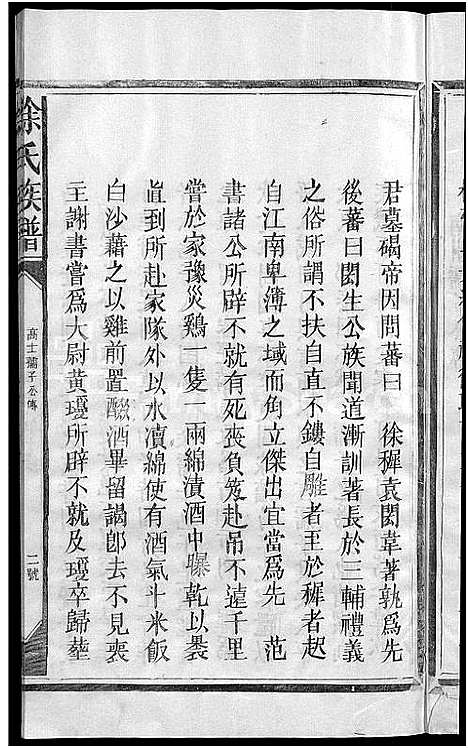 君墓碣帝因問蕃曰　徐穉袁閎韋著孰爲先
後蕃曰閎生公族聞道漸訓著長於三輔禮義
之俗所謂不扶自直不鏤自雕者王於穉者起
自江南卑簿之域而角立傑出宜當爲先　范
書諸公所辟不就有死喪負笈赴吊不遠千里
嘗於家豫災鷄一隻一兩綿漬酒中曝乾以褁
直到所赴家隊外以水瀆綿使有酒氣斗米飯
白沙藉之以雞前置醊酒畢留謁卽去不見喪
王謝書嘗爲大尉黄瓊所辟不就及瓊卒歸塟
徐氏族譜
高士孺子公傳
二號